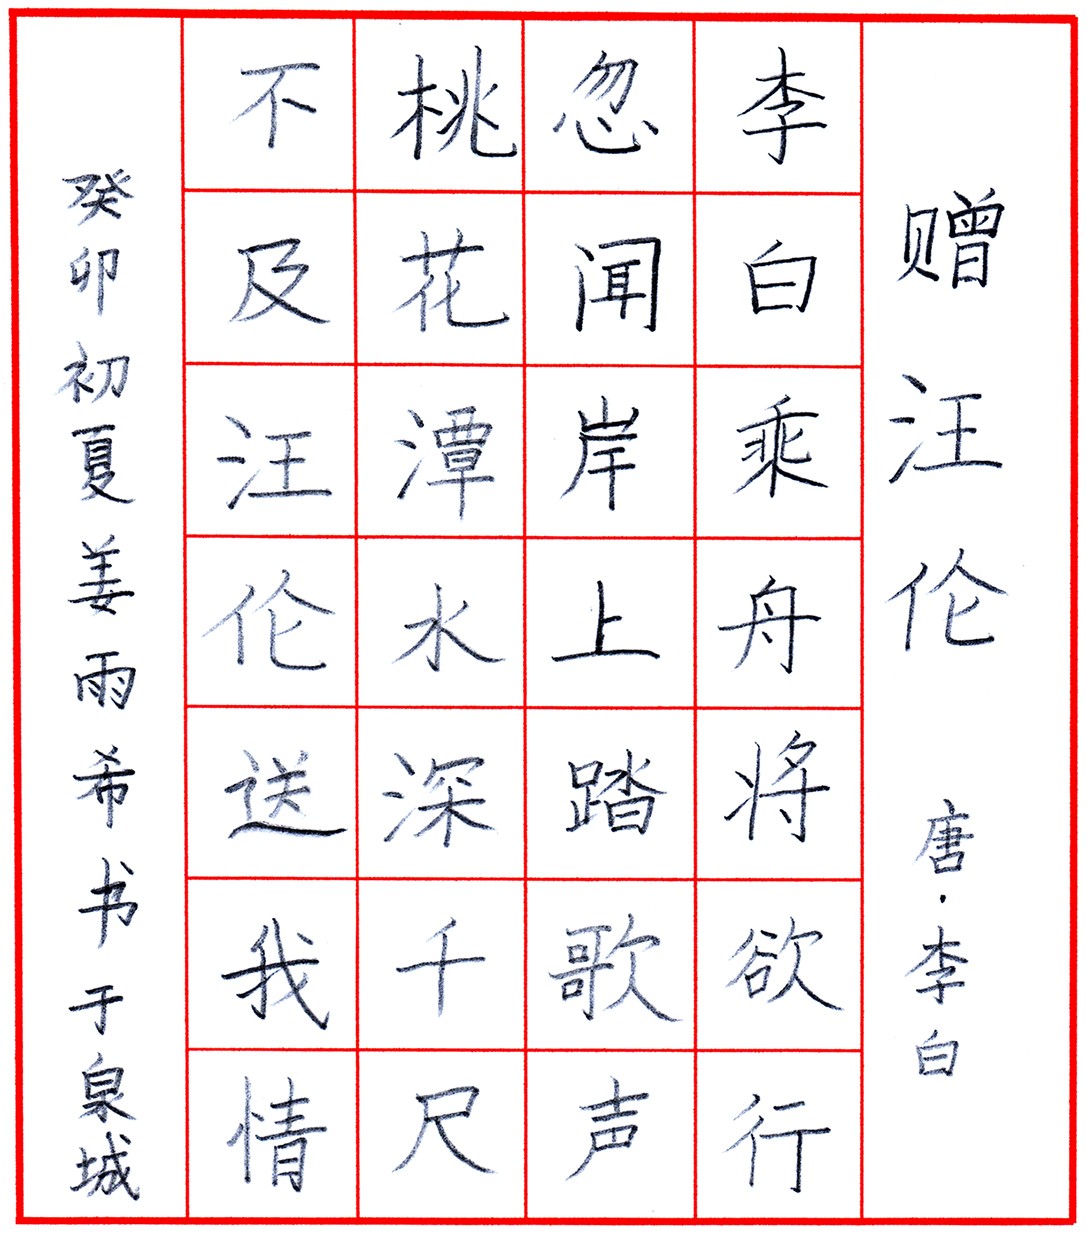 赠汪伦 唐·李白
李白乘舟将欲行
忽闻岸上踏歌声
桃花潭水深千尺
不及汪伦送我情
癸卯初夏姜雨希书于泉城